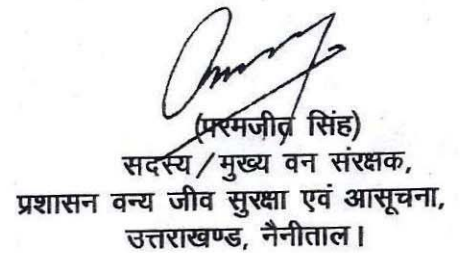 (परमजीत सिंह)
सदस्य/मुख्य वन संरक्षक,
प्रशासन वन्य जीव सुरक्षा एवं आसूचना,
उत्तराखण्ड, नैनीताल।